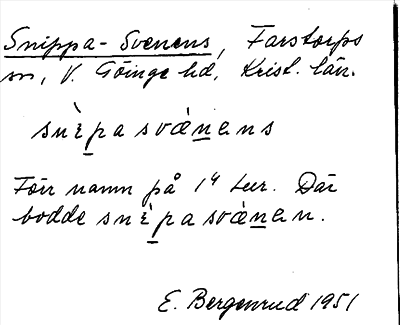 Snippa-Svenens, Farstorps
sn, V. Göinge hd, Krist. län.
snὲpasvὲnens
Förr namn på 1⁴ tur. Där
bodde snὲpasvὲnen.
E. Bergenrud 1951